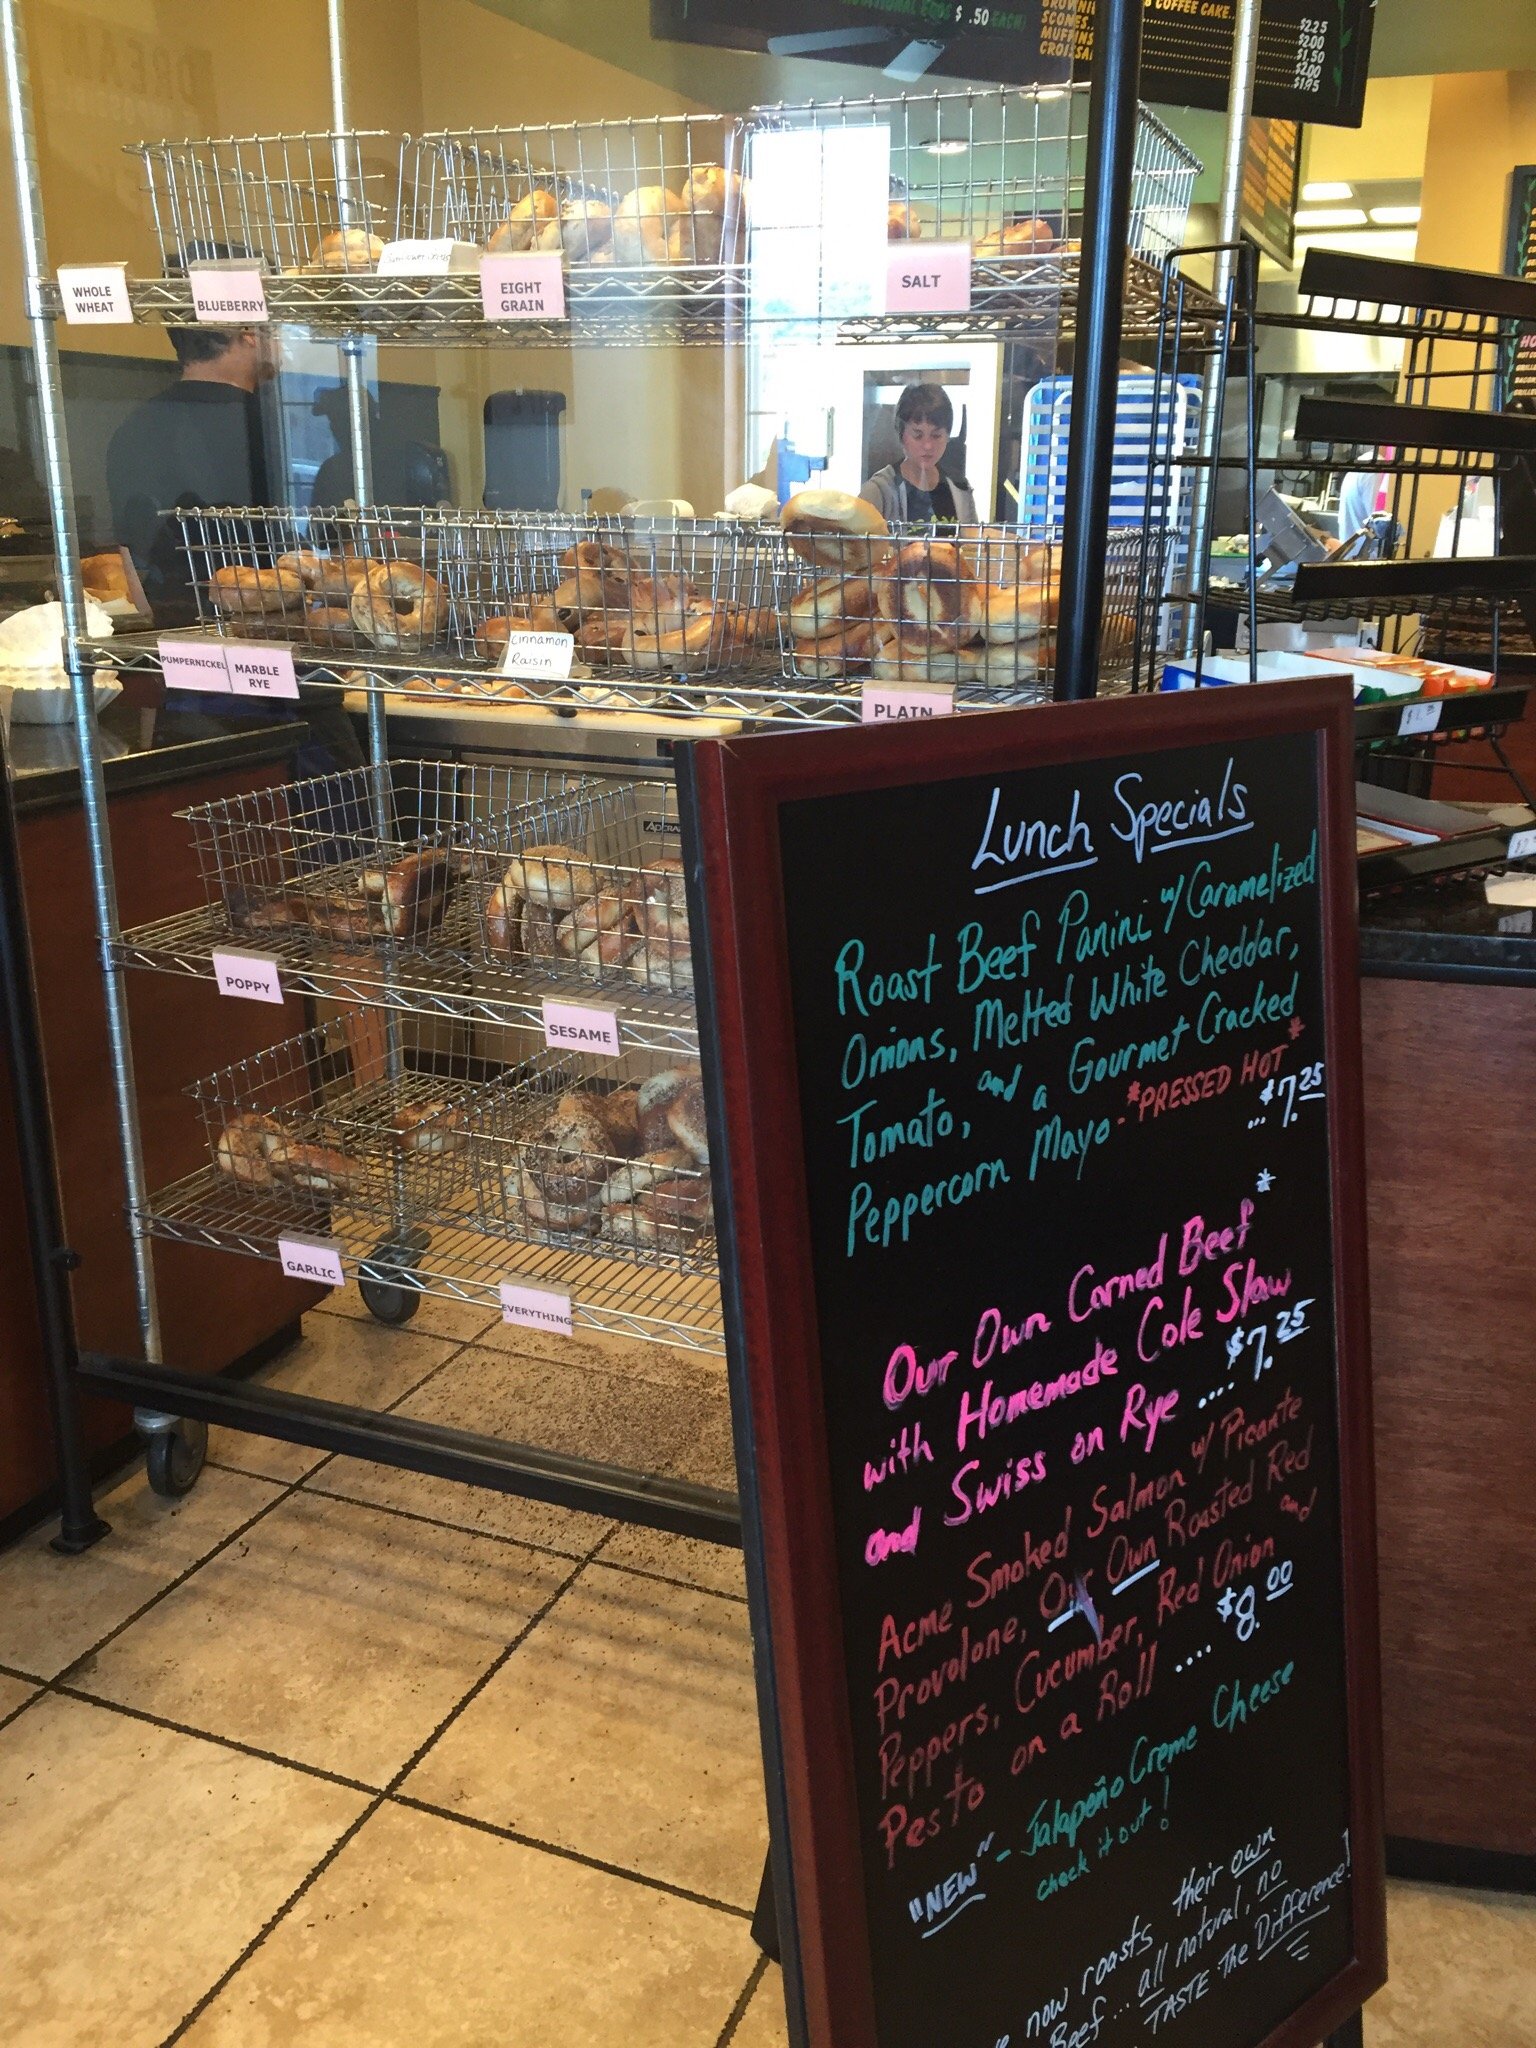 $ .50 EACH
COFFEE CAKE..
SCONES..
MUFFINS
$2.25
$2.00
$1.50
$2.00
$1.95
WHOLE
WHEAT
BLUEBERRY
EIGHT
GRAIN
SALT
PUMPERNICKEL
MARBLE
RYE
Cinnamon
Raisin
PLAIN
POPPY
SESAME
GARLIC
EVERYTHING
Lunch Specials
Roast Beef Panini w/ Caramelized
Onions, Melted White Cheddar,
Tomato, and a Gourmet Cracked
Peppercorn Mayo - *PRESSED HOT*
...$7.25
Our Own Corned Beef*
with Homemade Cole Slaw
and Swiss on Rye .... $7.25
Acme Smoked Salmon w/ Picante
Provolone, Our Own Roasted Red
Peppers, Cucumber, Red Onion and
Pesto on a Roll .... $8.00
"NEW" - Jalapeño Creme Cheese
check it out!
now roasts their own
Beef... all natural, no
TASTE The Difference!